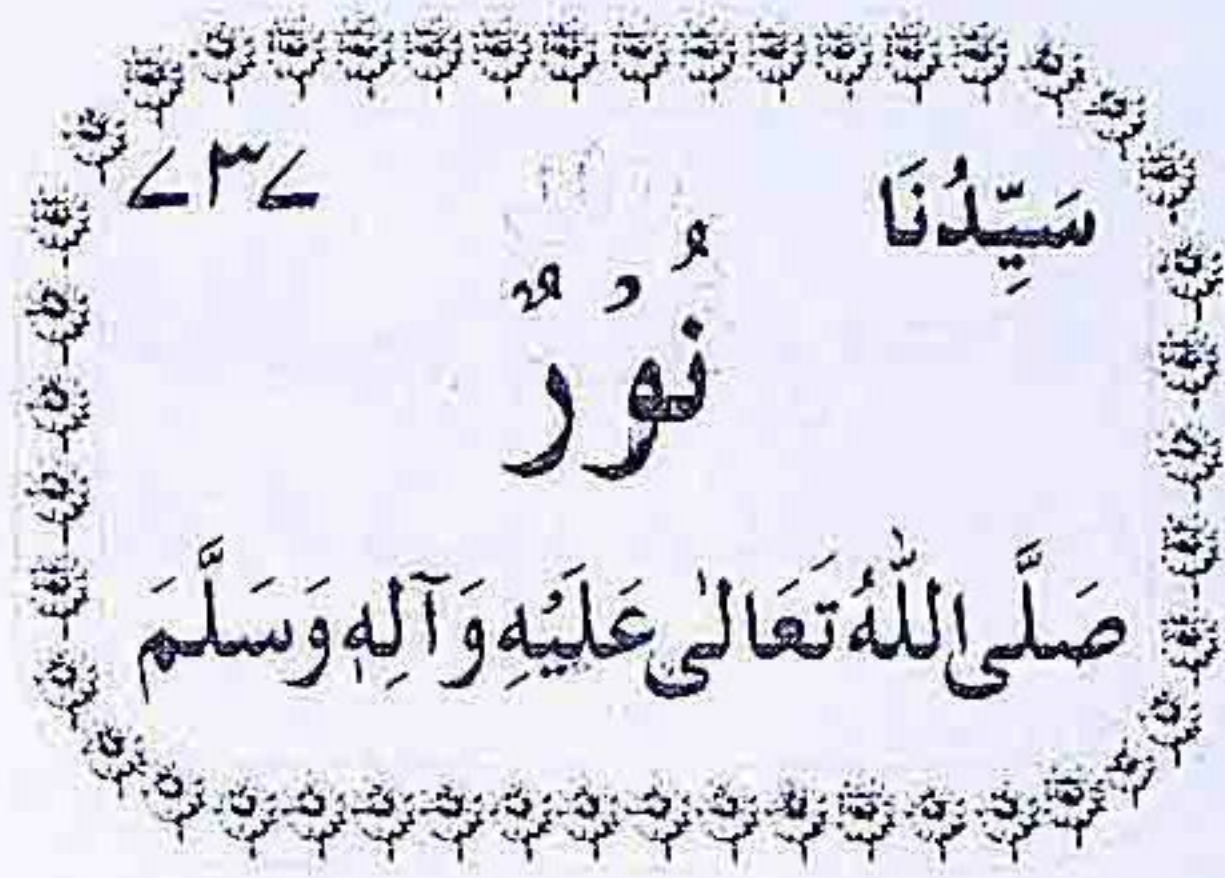 سَيِّدُنَا ۷۳۷
نُوْرٌ
صَلَّی اللّٰهُ تَعَالٰی عَلَیْهِ وَآلِهٖ وَسَلَّمَ